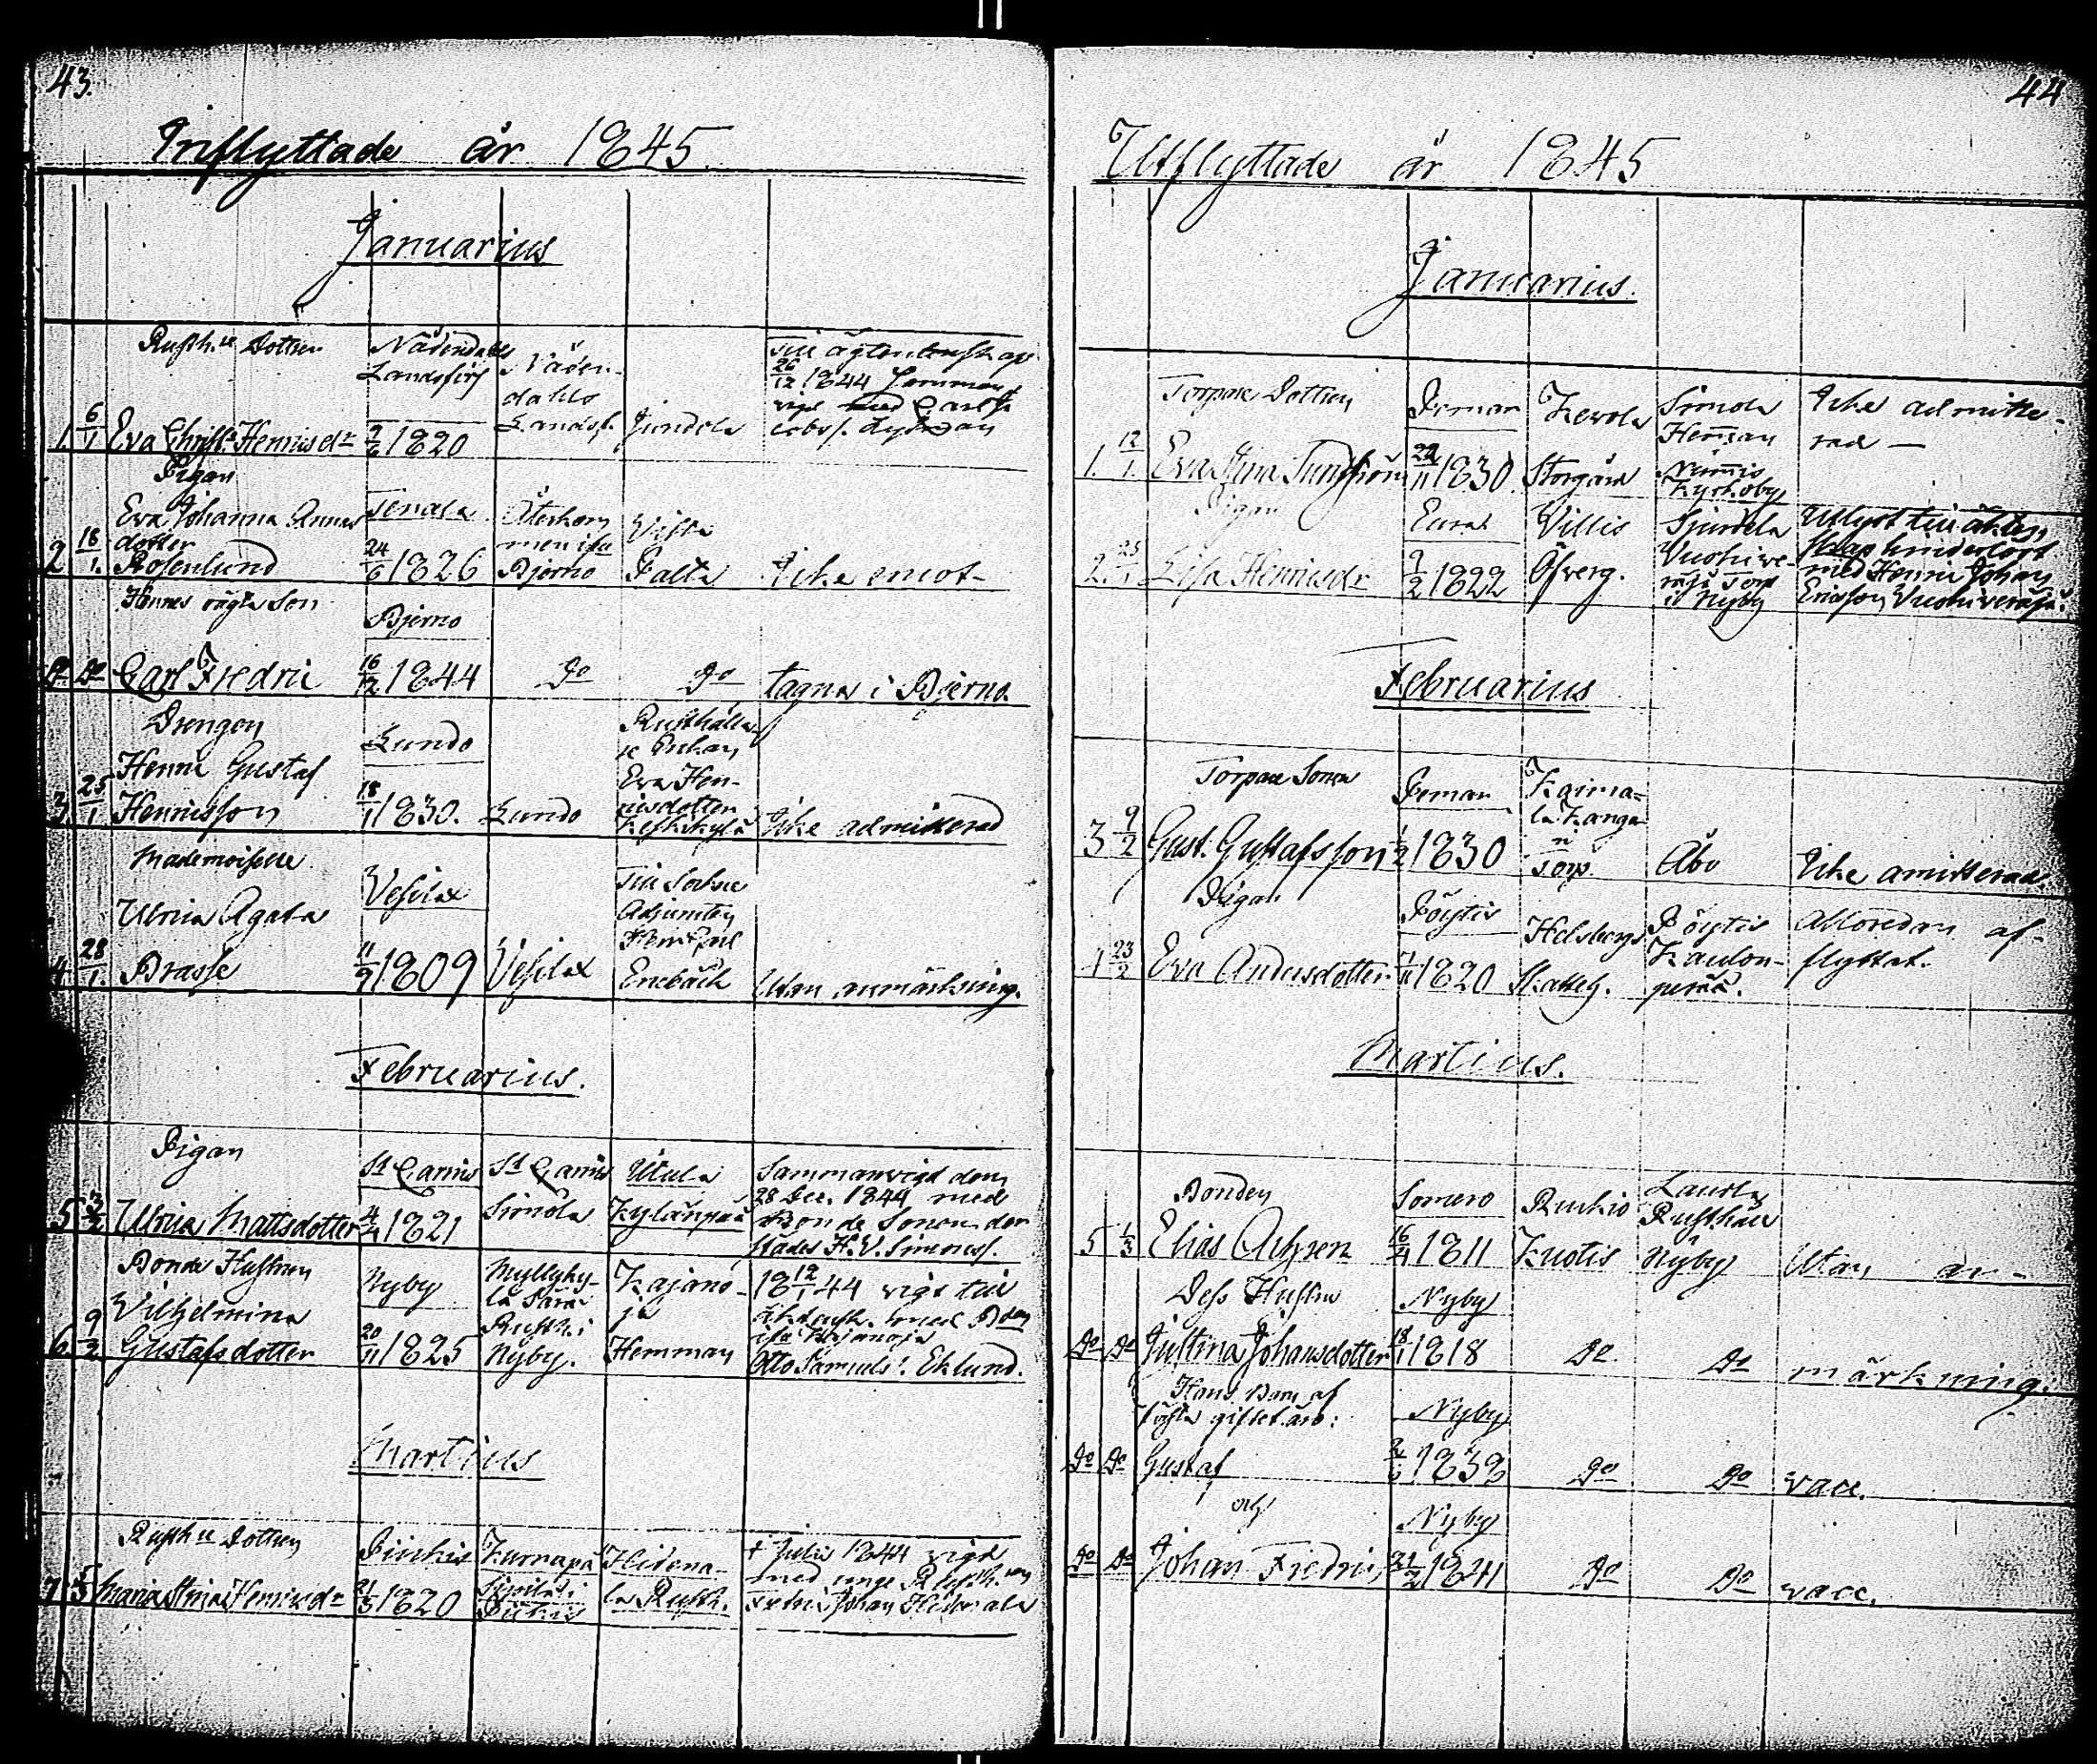 43.
Inflyttade år 1845.
Januarius
Rusth.re Dottren
Nådendahls
Landsförs
Nåden-
dahls
Landsf.
Jundola
Till ägtenskap
26/12 1844
vigd med Carl
1 6/1 Eva Christ. Henricsdr 9/6 1820
Pigan
Eva Johanna Anders
dotter
2 18/1. Rosenlund
Tenala
24/6 1826
Återkom
men ifrå
Bjerno
Vista
Palta
Icke emot-
Hennes oägta Son
Bjerno
Do Do Carl Fredric 16/12 1844 Do Do tagna i Bjerno.
Drengen
Henric Gustaf
3 25/1 Henricsson
Lundo
18/1 1830. Lundo
Rusthålla-
re Enkan
Eva Hen-
ricsdotter
Keskikylä
Icke admitterad
Mademoiselle
Ulrica Agata
4 28/1. Brasse
Vesilax
11/9 1809 Vesilax
Till Sockne
Adjuncten
Herr Carl
Enebäck
Utan anmärkning.
Februarius.
Pigan
5 3/2 Ulrica Mattsdotter
St Carins
4/4 1821
St Carins
Simola
Utula
Kylänpää
Sammanvigd den
28 Dec. 1844 med
Bonde Sonen der
städes H. V. Simonss.
Bonde Hustrun
Vilhelmina
6 9/2 Gustafsdotter
Nyby
20/11 1825
Myllyky-
lä
Rusth. i
Nyby.
Kajano-
ja
Hemman
18 12/1 44 vigd till
med
Kajanoja
Otto Samuels. Eklund.
Martius
Rusth.re Dottren
7 5/3 Maria Stina Henricsdr
Piikis
21/3 1820
Kurnapä
Piikis
Heidena-
la Rusth.
Julii 1844 vigd
med unge Rusth.
Johan Heidenala
44
Utflyttade år 1845
Januarius.
Torpare Dottren
1. 12/1. Eva Stina Sundström
Pemar
22/11 1830.
Kevola
Storgård
Simola
Hemman
Nummis
Kyrkoby
Icke admitte-
rad —
Pigan
2. 25/1 Lisa Henricsdr
Eura
9/2 1822
Villis
Öfverg.
Sjundela
Vuohive-
räjä Torp
i Nyby
Utlyst till äkten-
skap hinderlöst
med Henric Johan
Ericsson Vuohiveräjä.
Februarius
Torpare Sonen
3 9/2 Gust. Gustafsson
Pemar
1/2 1830
Kaima-
la Kanga-
ri
Torp.
Åbo
Icke amitterad.
Pigan
4 23/2 Eva Andersdotter
Pöytis
7/11 1820
Helsberg
Skatteh.
Pöytis
Kaulan-
perää.
Alloredan af-
flyttat.
Martius.
Bonden
5 1/3 Elias Achrén
Somero
16/4 1811
Ruskio
Kuotis
Laurila
Rusthåll
Nyby
Utan an-
Dess Hustru
Do Do Justina Johansdotter
Nyby
18/1 1818 Do. Do märkning.
Hans Barn af
förra giftet äro:
Do Do Gustaf
Nyby
2/6 1838 Do Do vacc.
och
Do Do Johan Fredric
Nyby
21/2 1841 Do Do vacc.